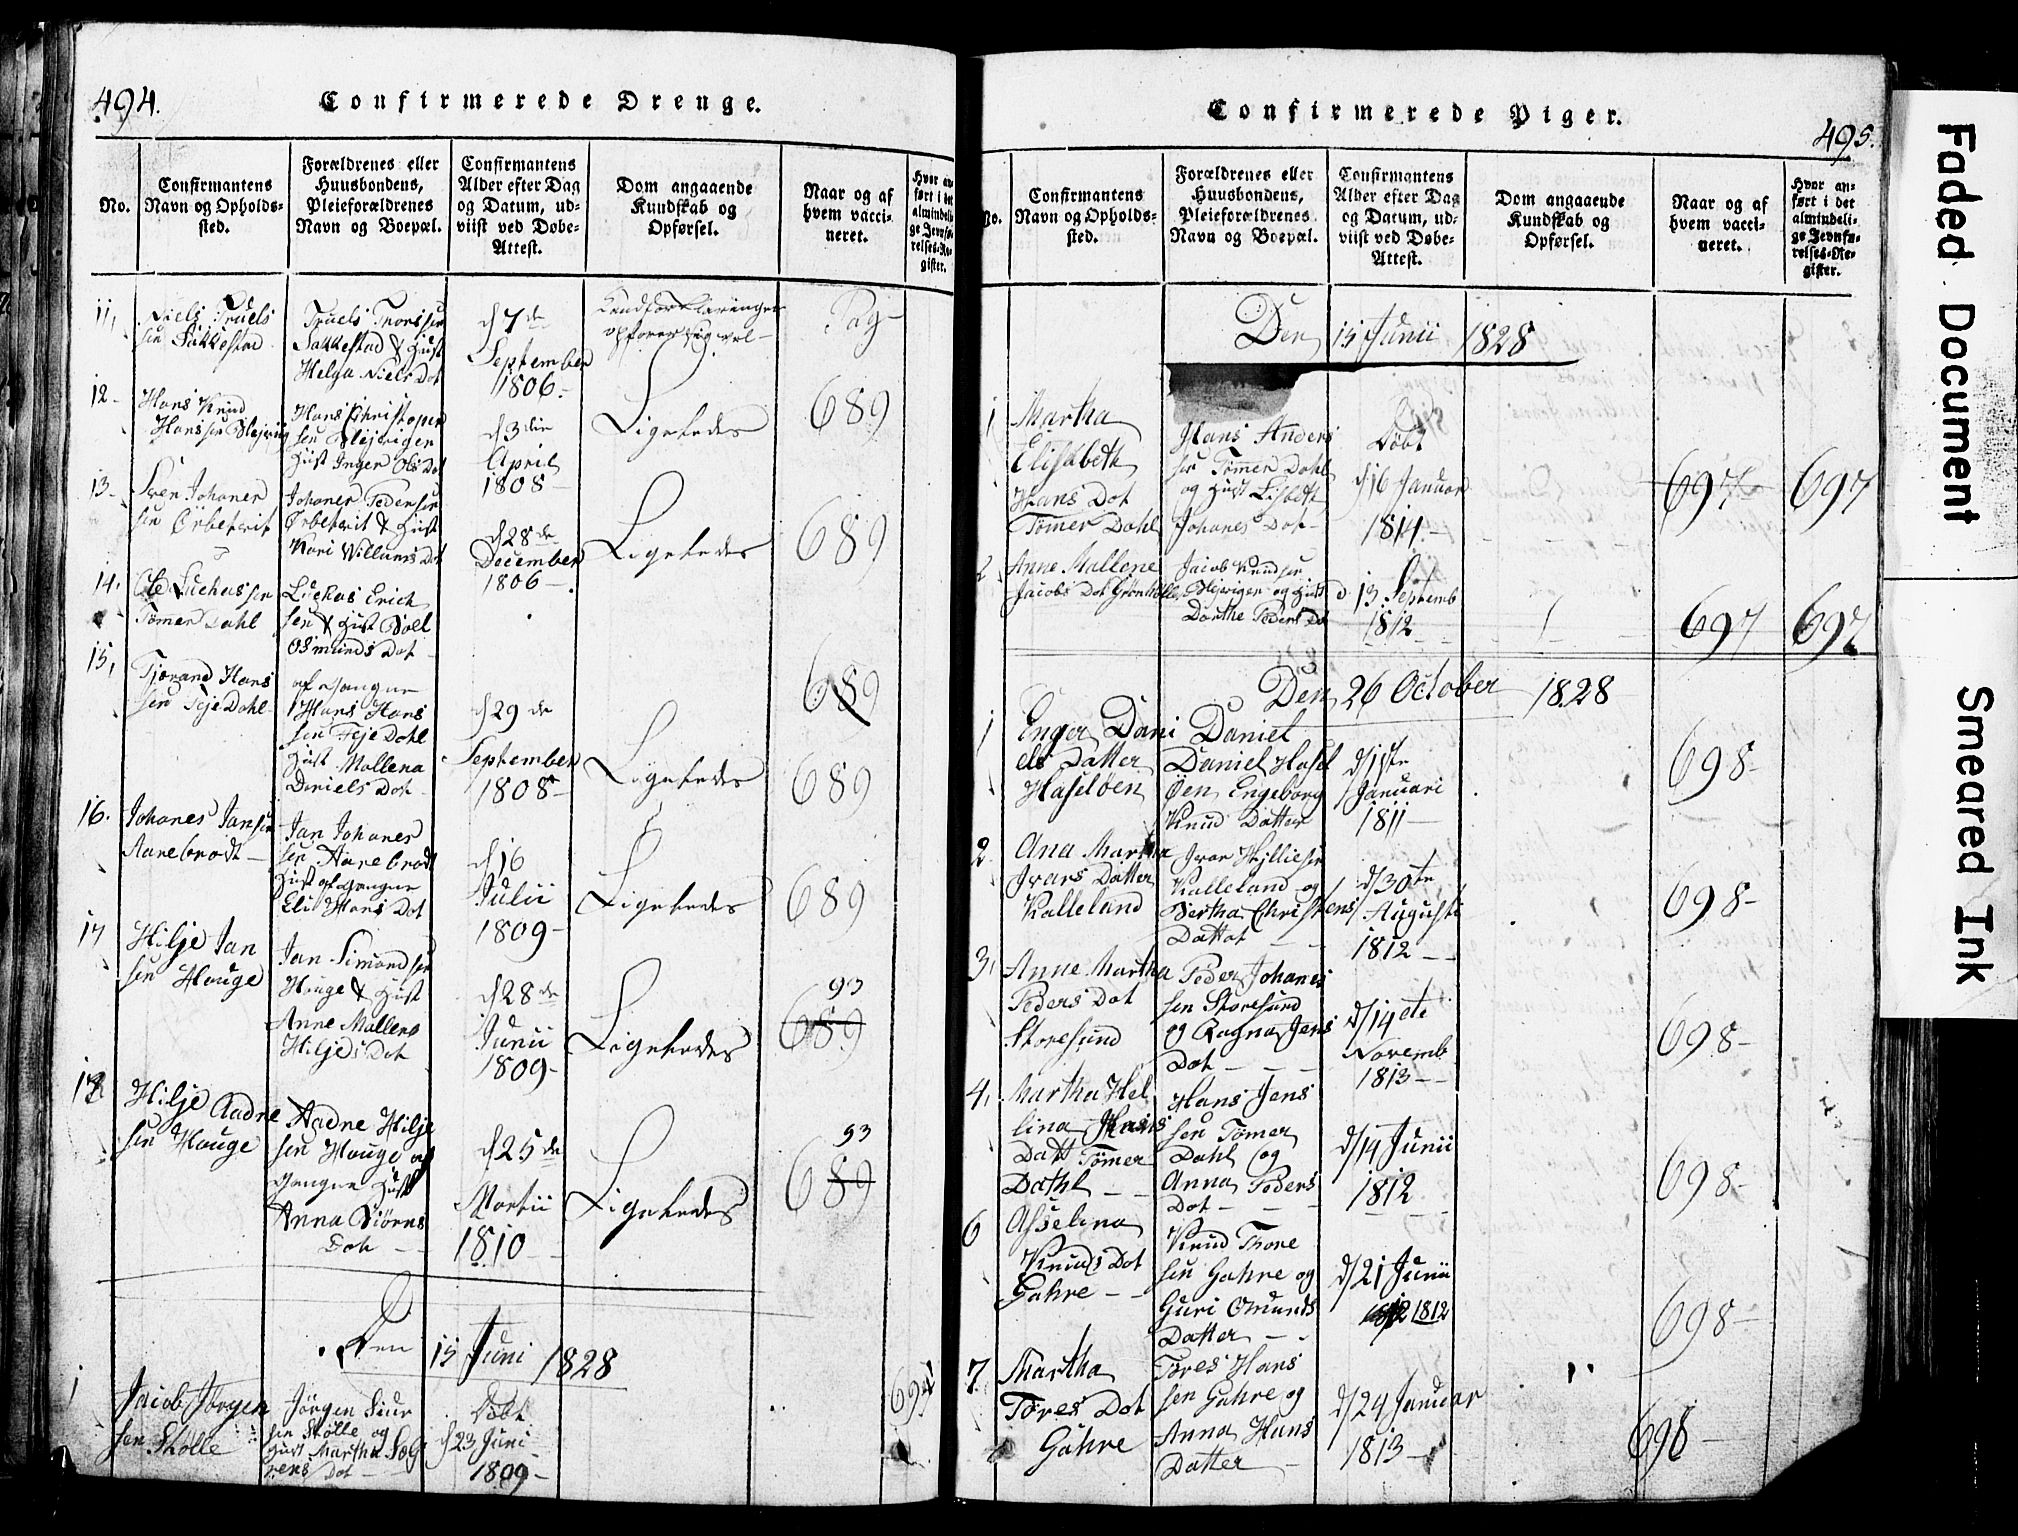 494.
Confirmerede Drenge.
No.
Confirmantens Navn og Opholds-sted.
Forældrenes eller Huusbondens, Pleieforældrenes Navn og Boepæl.
Confirmantens Alder efter Dag og Datum, ud-viist ved Døbe-Attest.
Dom angaaende Kundskab og Opførsel.
Naar og af hvem vacci-neret.
Hvor an-ført i det almindeli-ge Jevnfø-relses-Re-gister.
11,
Niels Truels
sen Sakkestad
Truels Thorssen
Sakkestad & Hust
Helga Niels Dot
d 7 de
September
1806.
opfører sig vel
12
Hans Knud
Hanssen
Hans Christopher
sen
Hust Inger Ols Dot
d 3 die
April
1808
Ligeledes
689
13
Sven Johanes
sen Ørbekvit
Johanes Peders
Ørbekvit & Hust
Kari Willums Dot
d 28 de
December
1806
Ligeledes
689
14.
Ole Luchassen
Tømer Dahl
Luchas Erich
sen & Hust
Osmunds Dot
15,
Tjorand Hans
sen Feje Dahl
afgangne
Hans Hans
sen Feje Dahl
Hust Mallena
Daniels Dot
d 29 de
September
1808
Ligeledes
689
689
16.
Johanes Jansen
Aarebrodt
Jan Johanes
sen Aarebrodt
Hust afgangne
Eli Hans Dot
d 16
Julii
1809
Ligeledes
689
17
Hilje Jan
sen Hauge
Jan Simondsen
Hauge & Hust
Anne Mallena
Hiljes Dot
d 28 de
Junii
1809
Ligeledes
93
689
18
Hilje Aadne
sen Hauge
Aadne Hilje
sen Hauge og
gangne Hust
Anna Biørns
Dot
d 25 de
Martii
1810
Ligeledes
93
689
Den 15 Juni 1828
1
Jacob Jørgen
sen Skolle
Jørgen Siur
sen Skolle og
Hust Martha
Dot
Døbt
d 23 Juni
1809
694
Confirmerede Piger.
495.
No.
Confirmantens Navn og Opholds-sted.
Forældrenes eller Huusbondens, Pleieforældrenes Navn og Boepæl.
Confirmantens Alder efter Dag og Datum, ud-viist ved Døbe-Attest.
Dom angaaende Kundskab og Opførsel.
Naar og af hvem vacci-neret.
Hvor an-ført i det almindeli-ge Jevnfø-relses-Re-gister.
Den 15 Junii 1828
1
Martha
Elisabeth
Hans Dot
Tømer Dahl
Hans Anders
sen Tømer Dahl
og Hust Lisbeth
Johanes Dot
Døbt
d 16 Januar
1814
697
697
2
Anne Mallene
Jacobs Dot
Jacob Knudsen
og Hust
Dorthe Peders Dot
d 13 Septemb
1812
697
697
Den 26 October 1828
1
Enger Dani
els Datter
Haseløen
Daniel
Daniel Hasel
øen Engeborg
Knud Datter
d 1ste
Januari
1811
698
2
Ana Martha
Ivars Datter
Kalleland
Ivar Hilliesen
Kalleland og
Bertha Christens
Datter
d 30te
Augusti
1812
698
3,
Anne Martha
Peders Dot
Storesund
Peder Johanes
sen Storesund
og Ragna Jens
Dot
d 14 de
Novemb
1813
698
4,
Martha Hel
lina Hans
Datt Tømer
Dahl
Hans Jens
sen Tømer
Dahl og
Anna Peders
Dot
d 14 Junii
1812
698
6
Asselina
Knuds Dot
Gahre
Knud Thore
sen Gahre og
Guri Omunds
Datter
d 21 Junii
1812
698
7.
Martha
Tores Dot
Gahre
Tores Hans
sen Gahre og
Anna Hans
Datter
d 24 Januar
1813
698
Faded Document
Smeared Ink